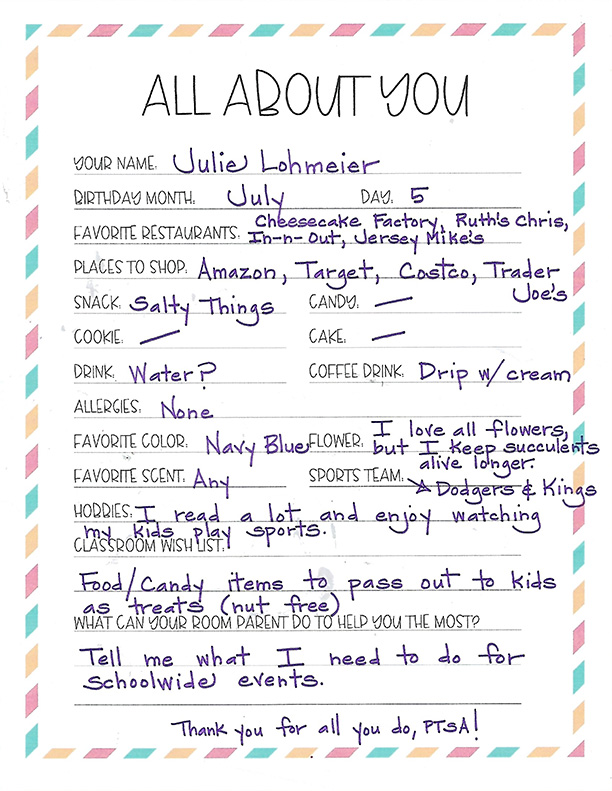 ALL ABOUT YOU
YOUR NAME: Julie Lohmeier
BIRTHDAY MONTH: July DAY: 5
FAVORITE RESTAURANTS: Cheesecake Factory, Ruth's Chris,
In-n-Out, Jersey Mike's
PLACES TO SHOP: Amazon, Target, Costco, Trader
Joe's
SNACK: Salty Things CANDY: —
COOKIE: — CAKE: —
DRINK: Water? COFFEE DRINK: Drip w/ cream
ALLERGIES: None
FAVORITE COLOR: Navy Blue FLOWER: I love all flowers,
but I keep succulents
alive longer.
FAVORITE SCENT: Any SPORTS TEAM: → Dodgers & Kings
HOBBIES: I read a lot and enjoy watching
my kids play sports.
CLASSROOM WISH LIST:
Food/Candy items to pass out to kids
as treats (nut free)
WHAT CAN YOUR ROOM PARENT DO TO HELP YOU THE MOST?
Tell me what I need to do for
schoolwide events.
Thank you for all you do, PTSA!